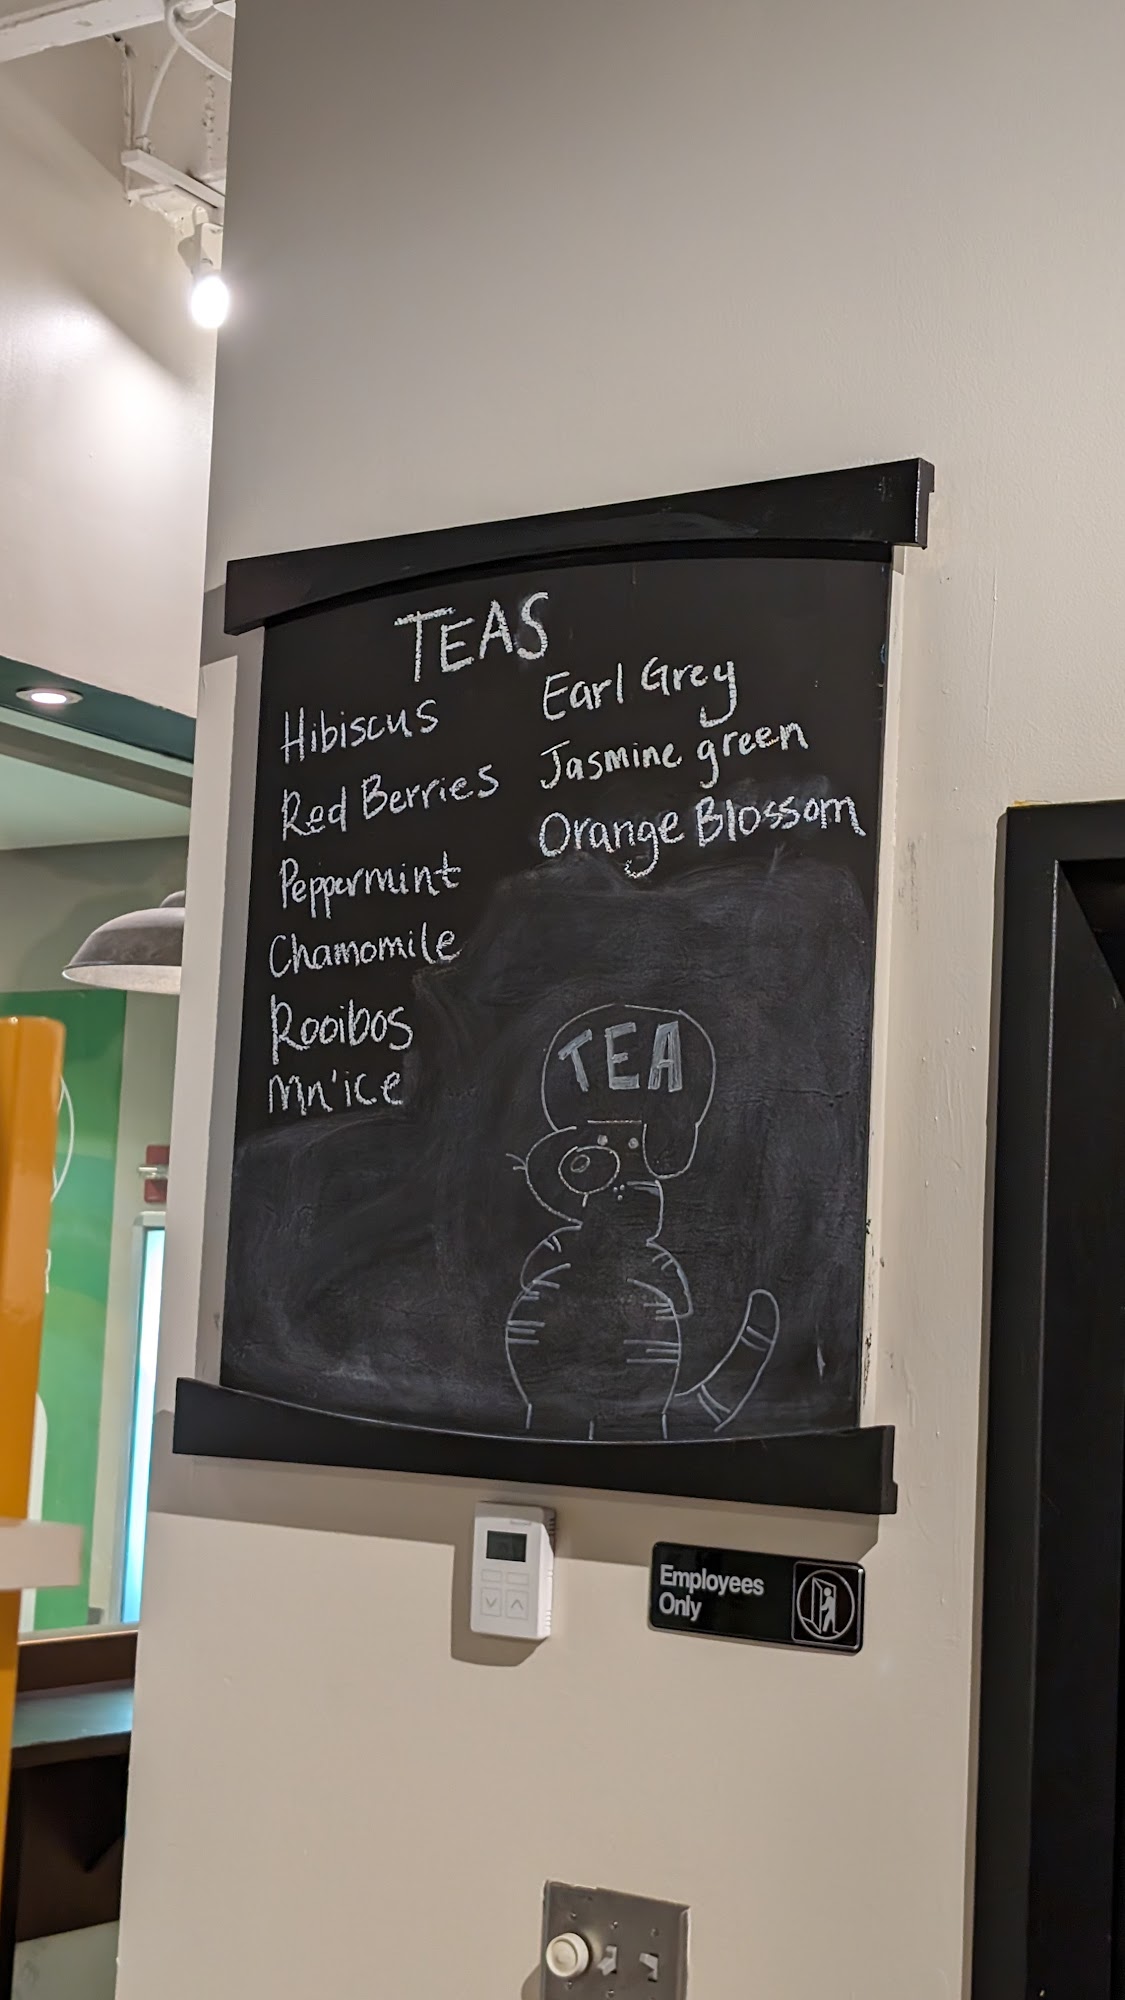 TEAS
Hibiscus
Red Berries
Peppermint
Chamomile
Rooibos
Mn'ice
Earl Grey
Jasmine green
Orange Blossom
TEA
Employees
Only